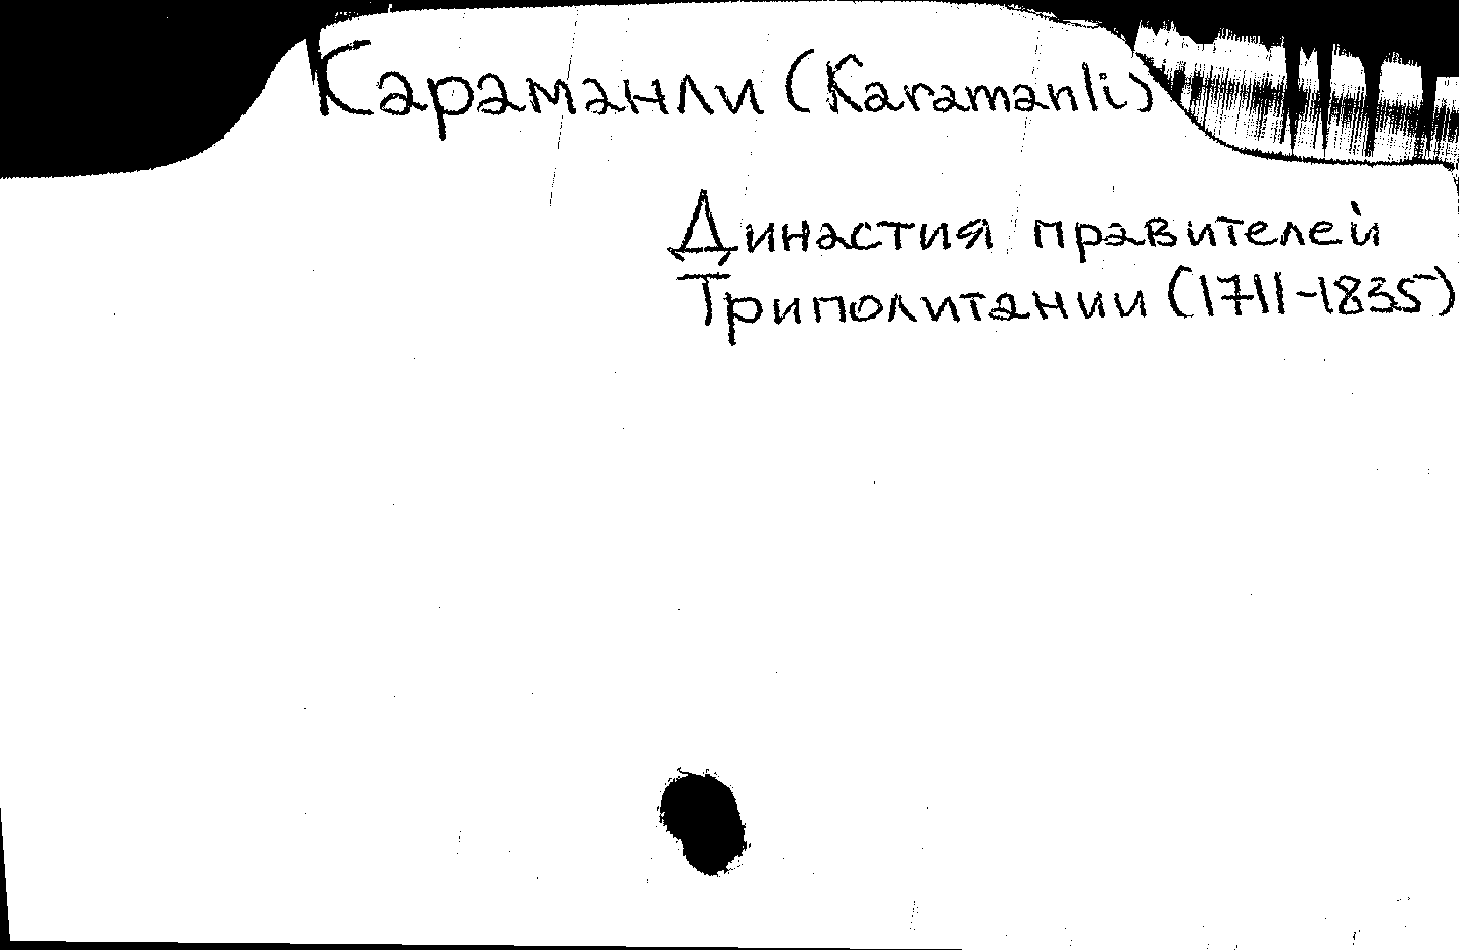 Караманли (Karamanli)
Династия правителей
Триполитании (1711-1835)